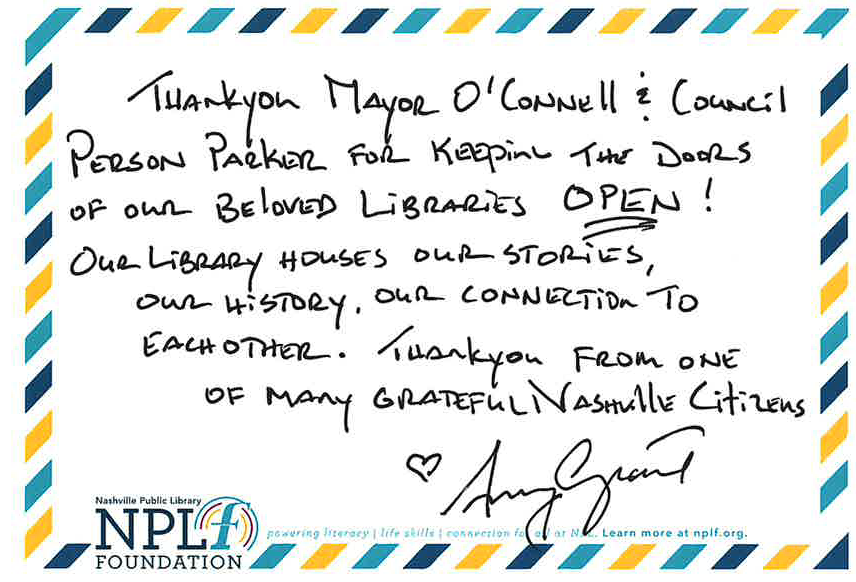 Thankyou Mayor O'Connell & Council
Person Parker for Keeping the Doors
of our Beloved Libraries OPEN!
Our Library houses our stories,
our history, our connection to
each other. Thankyou from one
of many grateful Nashville Citizens
♡ Amy Grant
Nashville Public Library
NPLf
FOUNDATION
powering literacy | life skills | connection for all at NPL. Learn more at nplf.org.